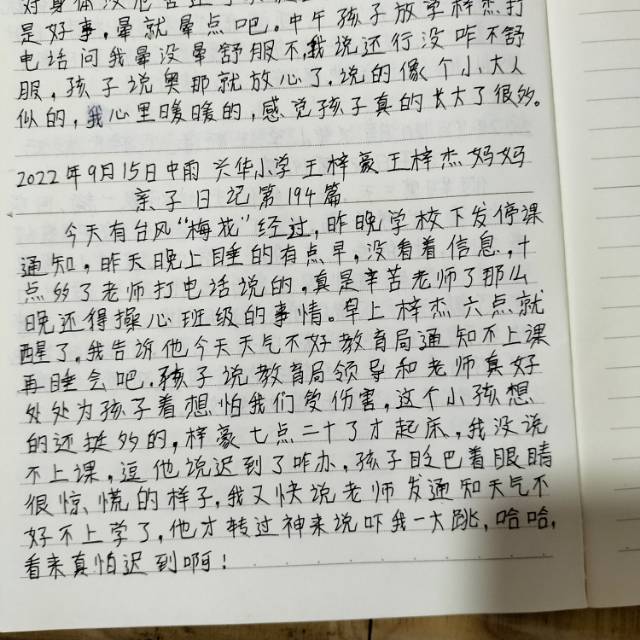 是好事,晕就晕点吧。中午孩子放学梓杰打
电话问我晕没晕舒服不,我说还行没咋不舒
服,孩子说奥那就放心了,说的像个小大人
似的,我心里暖暖的,感觉孩子真的长大了很多。
2022年9月15日中雨 兴华小学王梓豪王梓杰妈妈
亲子日记第194篇
今天有台风“梅花”经过,昨晚学校下发停课
通知,昨天晚上睡的有点早,没看着信息,十
点多了老师打电话说的,真是辛苦老师了那么
晚还得操心班级的事情。早上梓杰六点就
醒了,我告诉他今天天气不好教育局通知不上课
再睡会吧,孩子说教育局领导和老师真好
处处为孩子着想怕我们受伤害,这个小孩想
的还挺多的,梓豪七点二十了才起床,我没说
不上课,逗他说迟到了咋办,孩子眨巴着眼睛
很惊慌的样子,我又快说老师发通知天气不
好不上学了,他才转过神来说吓我一大跳,哈哈,
看来真怕迟到啊!